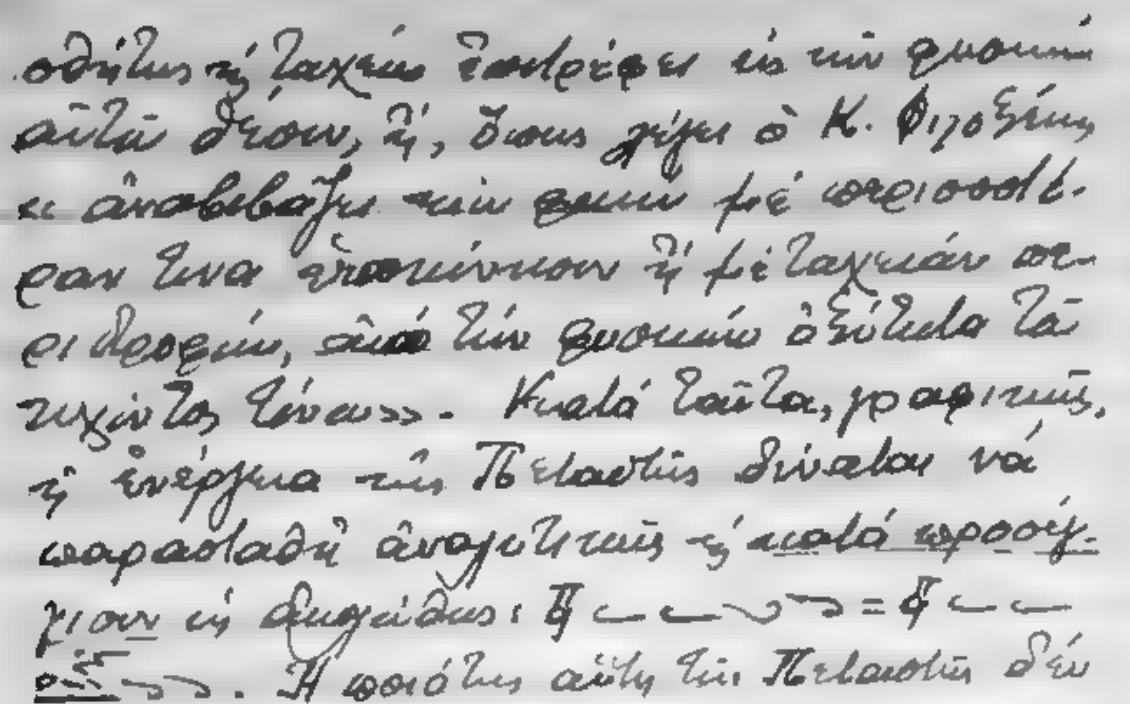 ταχέως ἐπιστρέφει εἰς τὴν φυσικὴν
αὐτοῦ θέσιν, ἤ, ὅπως λέγει ὁ Κ. Φιλοξένης
ἀναβιβάζει τὴν φωνὴν μὲ περισσοτέ-
ραν τινα ὑποκίνησιν ἢ μὲ ταχεῖάν πε-
ριδρομήν, ἀπὸ τὴν φυσικὴν ὀξύτητα τοῦ
τυχόντος τόνου». Κατὰ ταῦτα, γραφικῶς,
ἡ ἐνέργεια τῆς Πεταστῆς δύναται νὰ
παρασταθῇ ἀναλυτικῶς ἢ κατὰ προσέγ-
γισιν ὡς ἀκολούθως: =
. Ἡ ποιότης αὕτη τῆς Πεταστῆς δέν